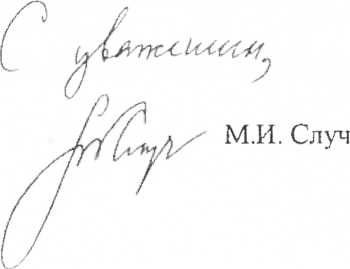 С уважением,
М.И. Случ